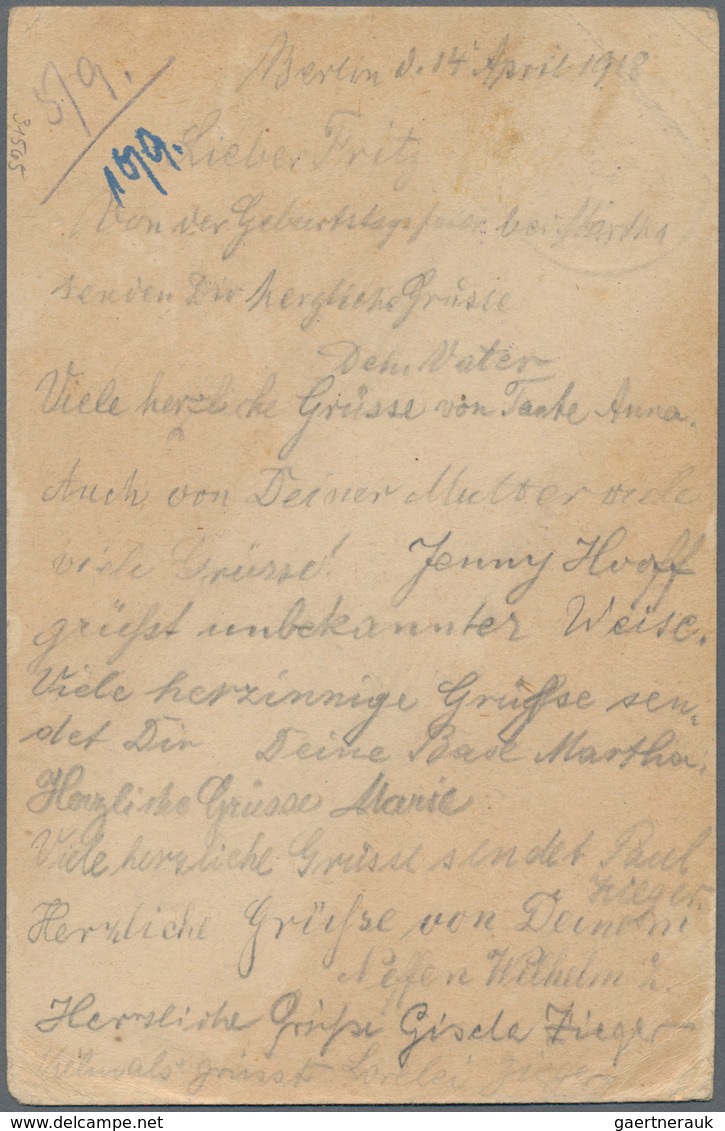 Berlin d. 14 April 1918
5/9.
31565
10/9.
Lieber Fritz
Von der Geburtstagsfeier bei Martha
senden Dir herzliche Grüsse
Dein Vater
Viele herzliche Grüsse von Tante Anna.
Auch von Deiner Mutter viele
viele Grüsse! Jenny Hooff
grüßt unbekannter Weise.
Viele herzinnige Grüße sen-
det Dir Deine Base Martha.
Herzliche Grüsse Marie
Viele herzliche Grüsse sendet Paul
Zieger.
Herzliche Grüße von Deinem
Neffen Wilhelm Z.
Herzliche Grüße Gisela Zieger
grüsst Lorelei Zieger
gaertnerauk